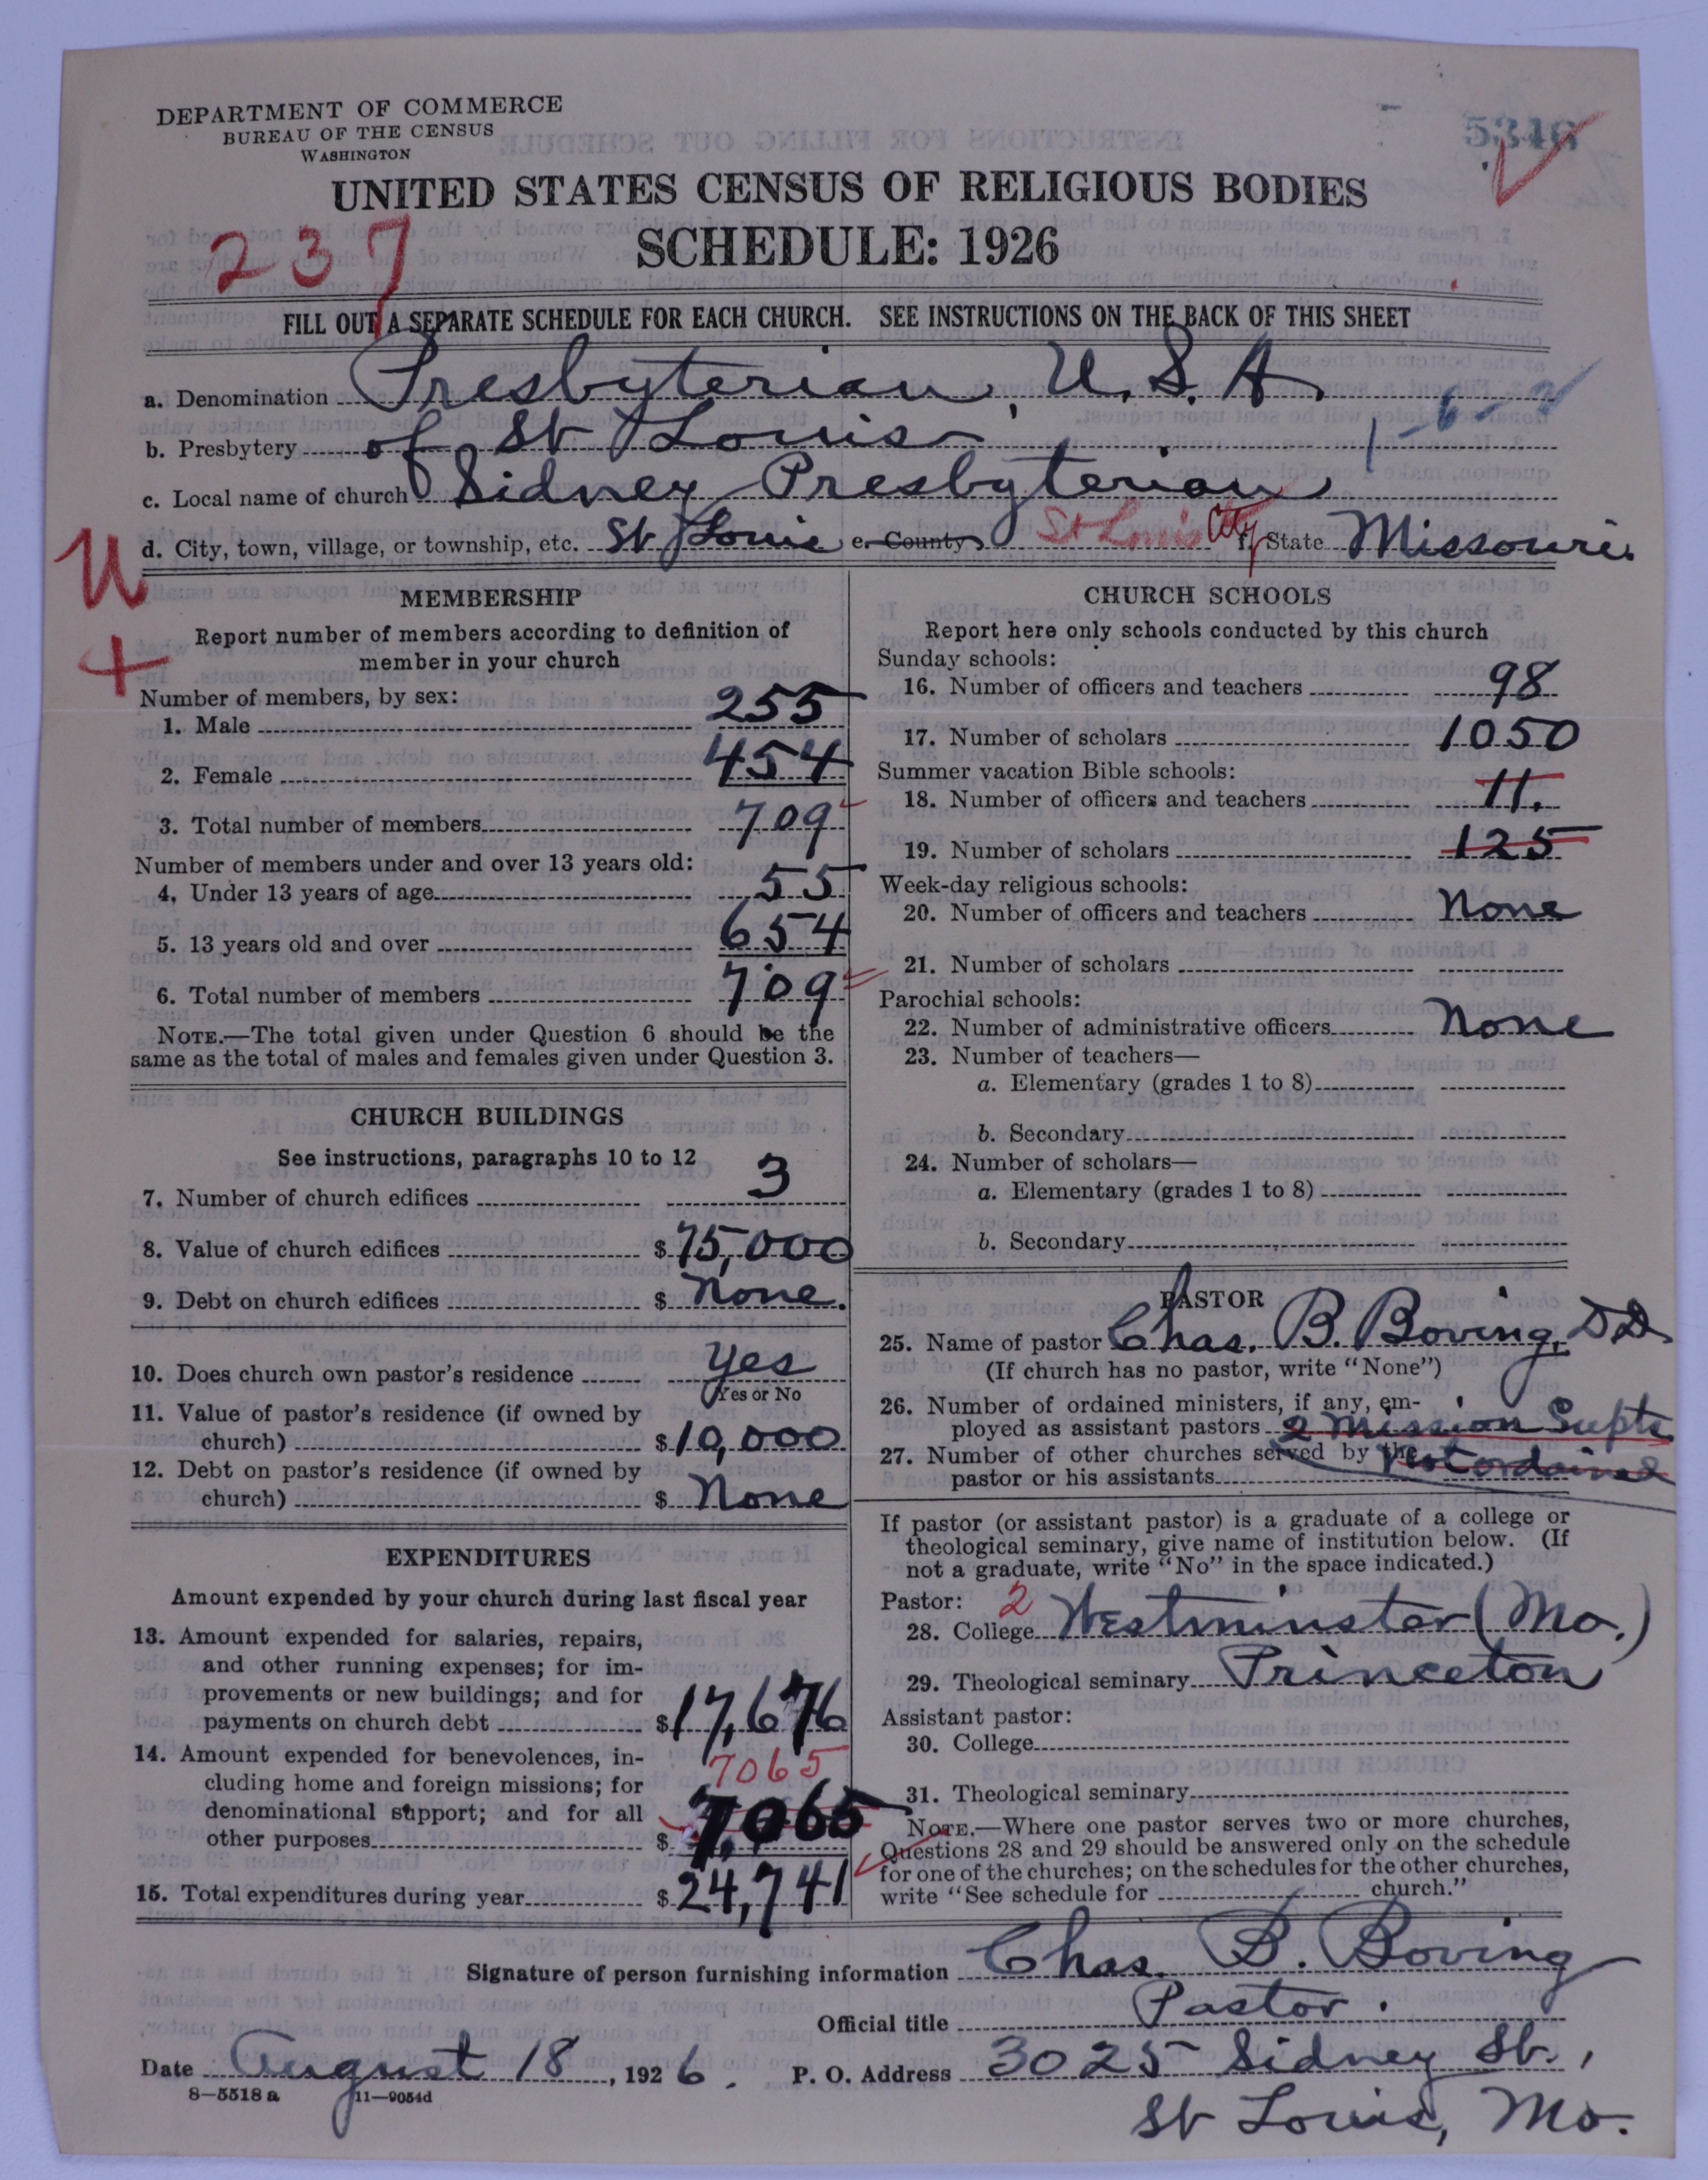 DEPARTMENT OF COMMERCE
BUREAU OF THE CENSUS
WASHINGTON
5346
UNITED STATES CENSUS OF RELIGIOUS BODIES
SCHEDULE: 1926
237
FILL OUT A SEPARATE SCHEDULE FOR EACH CHURCH. SEE INSTRUCTIONS ON THE BACK OF THIS SHEET
a. Denomination Presbyterian, U. S. A.
b. Presbytery of St Louis
c. Local name of church Sidney Presbyterian
d. City, town, village, or township, etc. St Louis e. County St Louis City f. State Missouri.
MEMBERSHIP
Report number of members according to definition of
member in your church
Number of members, by sex:
1. Male 255
2. Female 454
3. Total number of members 709
Number of members under and over 13 years old:
4. Under 13 years of age 55
5. 13 years old and over 654
6. Total number of members 709
NOTE.—The total given under Question 6 should be the
same as the total of males and females given under Question 3.
CHURCH BUILDINGS
See instructions, paragraphs 10 to 12
7. Number of church edifices 3
8. Value of church edifices $75,000
9. Debt on church edifices $ None.
10. Does church own pastor's residence Yes
Yes or No
11. Value of pastor's residence (if owned by
church) $10,000
12. Debt on pastor's residence (if owned by
church) $ None
EXPENDITURES
Amount expended by your church during last fiscal year
13. Amount expended for salaries, repairs,
and other running expenses; for im-
provements or new buildings; and for
payments on church debt $17,676
14. Amount expended for benevolences, in-
cluding home and foreign missions; for
denominational support; and for all
other purposes $ 7,065
7065
15. Total expenditures during year $24,741
CHURCH SCHOOLS
Report here only schools conducted by this church
Sunday schools:
16. Number of officers and teachers 98
17. Number of scholars 1050
Summer vacation Bible schools:
18. Number of officers and teachers 11.
19. Number of scholars 125
Week-day religious schools:
20. Number of officers and teachers None
21. Number of scholars
Parochial schools:
22. Number of administrative officers None
23. Number of teachers—
a. Elementary (grades 1 to 8)
b. Secondary
24. Number of scholars—
a. Elementary (grades 1 to 8)
b. Secondary
PASTOR
25. Name of pastor Chas. B. Boving, D.D.
(If church has no pastor, write "None")
26. Number of ordained ministers, if any, em-
ployed as assistant pastors 2 Mission Supts
27. Number of other churches served by the Not ordained
pastor or his assistants
If pastor (or assistant pastor) is a graduate of a college or
theological seminary, give name of institution below. (If
not a graduate, write "No" in the space indicated.)
Pastor: 2
28. College Westminster (Mo.)
29. Theological seminary Princeton
Assistant pastor:
30. College
31. Theological seminary
NOTE.—Where one pastor serves two or more churches,
Questions 28 and 29 should be answered only on the schedule
for one of the churches; on the schedules for the other churches,
write "See schedule for church."
Signature of person furnishing information Chas. B. Boving
Official title Pastor.
Date August 18, 1926. P. O. Address 3025 Sidney St.,
8—5518 a 11—9054d
St Louis, Mo.